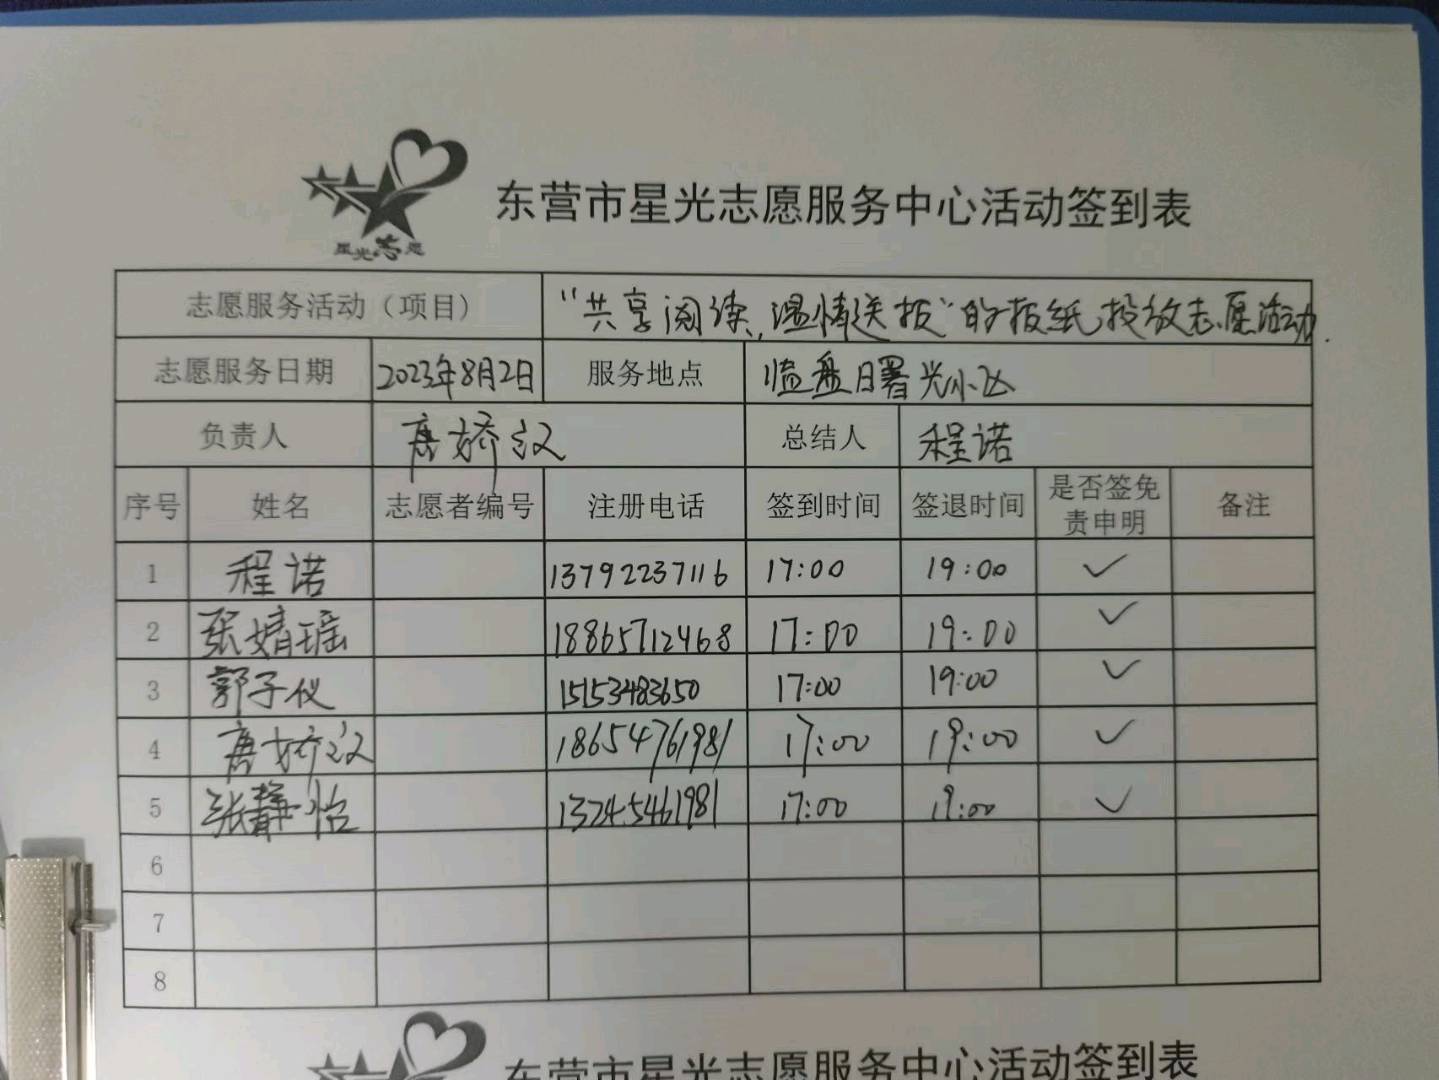 东营市星光志愿服务中心活动签到表
星光志愿
志愿服务活动（项目） “共享阅读，温情送报”的报纸投放志愿活动.
志愿服务日期 2023年8月2日 服务地点 临盘日署光小区
负责人 唐娇汉 总结人 程诺
序号 姓名 志愿者编号 注册电话 签到时间 签退时间 是否签免责申明 备注
1 程诺 13792237116 17:00 19:00 ✓
2 张婧瑶 18865712468 17:00 19:00 ✓
3 郭子仪 15153483650 17:00 19:00 ✓
4 唐娇汉 18654761981 17:00 19:00 ✓
5 张静怡 13245461981 17:00 19:00 ✓
6
7
8
东营市星光志愿服务中心活动签到表